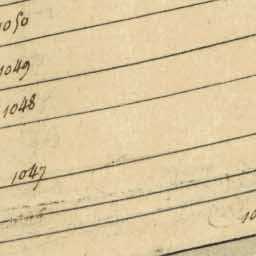 1050
1049
1048
1047